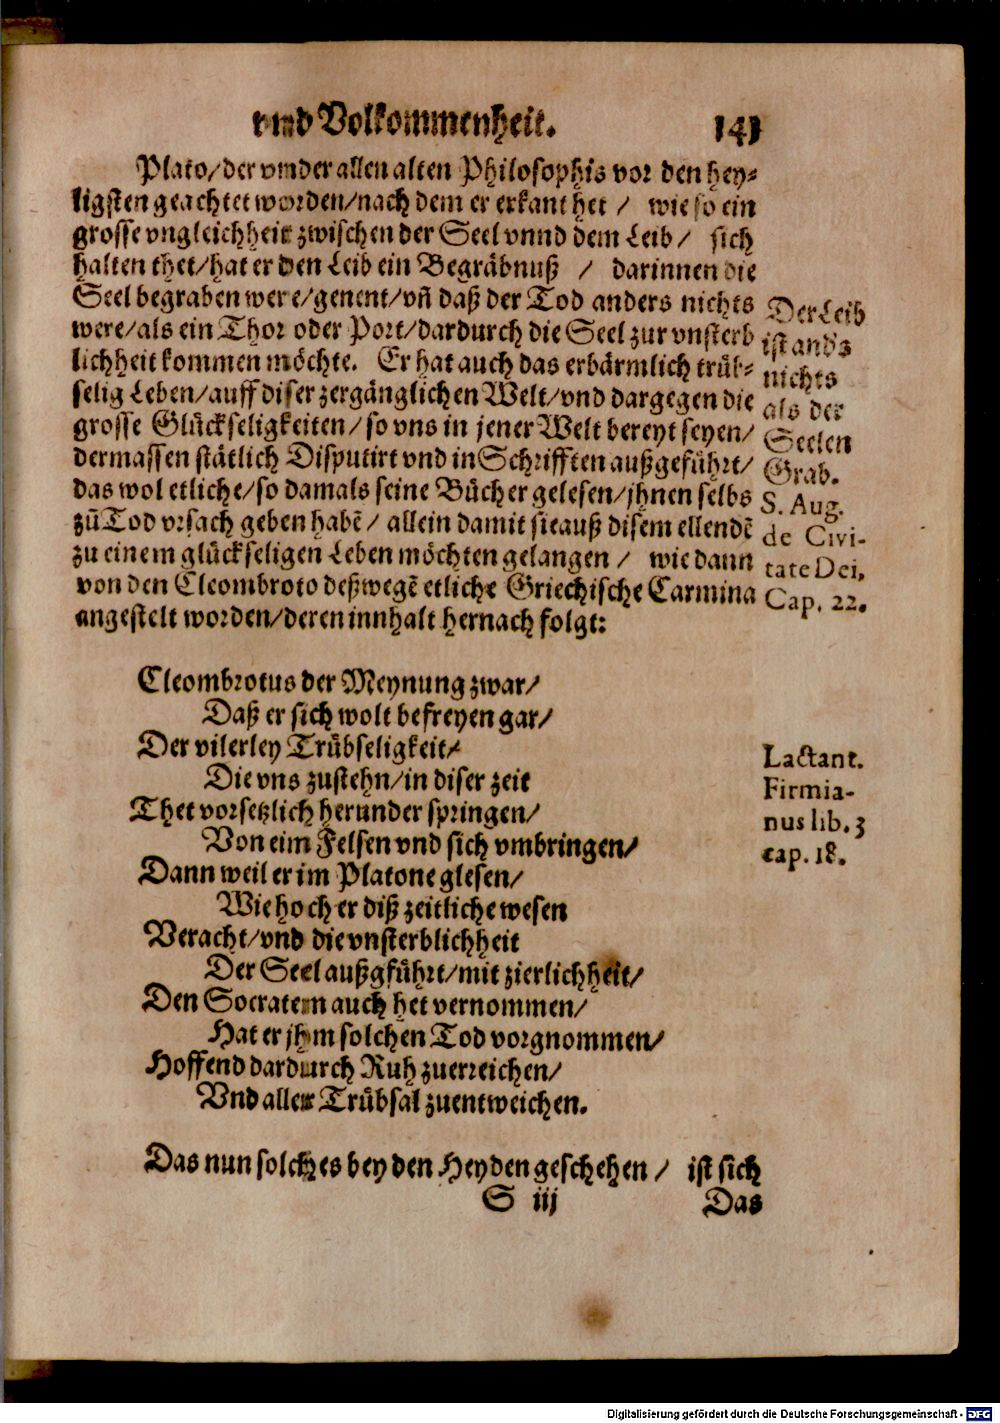 vnd Volkommenheit. 141
Plato/der vnnder allen alten Philosophis vor den hey-
ligsten geachtet worden/nach dem er erkant het / wie so ein
grosse vngleichheit zwischen der Seel vnnd dem Leib / sich
halten thet/hat er den Leib ein Begräbnuß / darinnen die
Seel begraben were/genent/vñ daß der Tod anders nichts
were/als ein Thor oder Port/dardurch die Seel zur vnsterb
lichheit kommen möchte. Er hat auch das erbärmlich trüb-
selig Leben/auff diser zergänglichen Welt/vnd dargegen die
grosse Glückseligkeiten/so vns in jener Welt bereyt seyen/
dermassen stätlich Disputirt vnd in Schrifften außgeführt/
das wol etliche/so damals seine Bücher gelesen/jhnen selbs
zũ Tod vrsach geben habẽ/ allein damit sie auß disem ellendẽ
zu einem glückseligen Leben möchten gelangen / wie dann
von den Cleombroto deßwegẽ etliche Griechische Carmina
angestelt worden/deren innhalt hernach folgt:
Der Leib
ist and's
nichts
als der
Seelen
Grab.
S. Aug.
de Civi-
tate Dei,
Cap. 22.
Cleombrotus der Meynung zwar/
Daß er sich wolt befreyen gar/
Der vilerley Trübseligkeit/
Die vns zustehn/in diser zeit
Thet vorsetzlich herunder springen/
Von eim Felsen vnd sich vmbringen/
Dann weil er im Platone glesen/
Wie hoch er diß zeitliche wesen
Veracht/vnd die vnsterblichheit
Der Seel außgführt/mit zierlichheit/
Den Socratem auch het vernommen/
Hat er jhm solchen Tod vorgnommen/
Hoffend dardurch Ruh zuerreichen/
Vnd aller Trübsal zuentweichen.
Lactant.
Firmia-
nus lib. 3
cap. 18.
Das nun solches bey den Heyden geschehen / ist sich
S iij Das
Digitalisierung gefördert durch die Deutsche Forschungsgemeinschaft - DFG